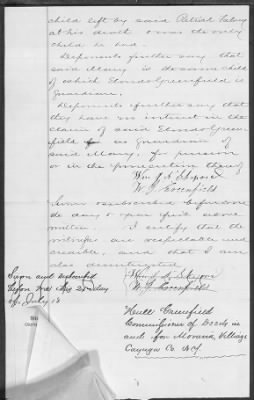 child left by said Patrick Fahey
at his death and was the only
child he had.
Deponents further say that
said Mary is the same child
of which Elmdor Greenfield is
Guardian.
Deponents further say that
they have no interest in the
claim of said Elmdor Green-
field as Guardian of
said Mary for pension
or in the prosecution thereof
W. J. Greenfield
Sworn & subscribed before me
this day & upon
I certify that the
witnesses are respectable and
credible, and that I am
also disinterested
W. J. Greenfield
Sworn and subscribed
before me this day
of July 18
Greenfield
Commissioner of Deeds in
and for Moravia Village
Cayuga Co N.Y.